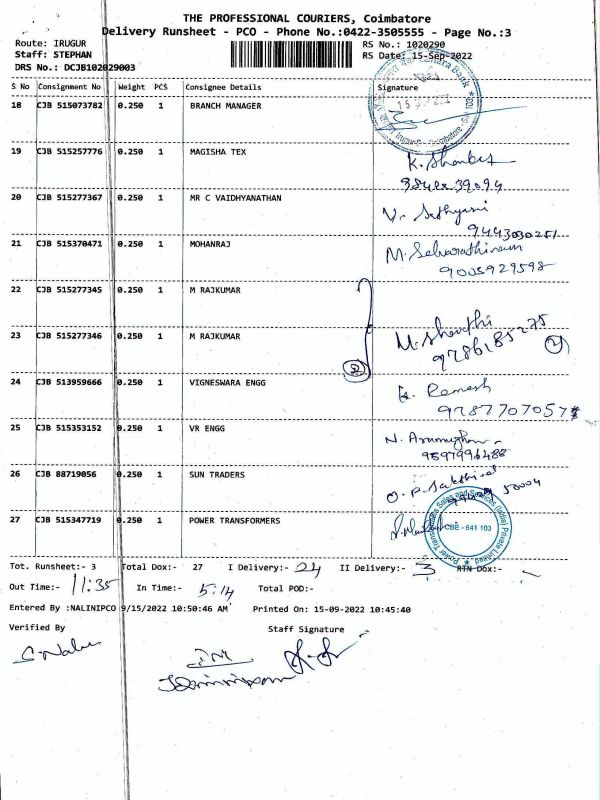 THE PROFESSIONAL COURIERS, Coimbatore
Delivery Runsheet - PCO - Phone No.:0422-3505555 - Page No.:3
Route: IRUGUR RS No.: 1020290
Staff: STEPHAN RS Date: 15-Sep-2022
DRS No.: DCJB102029003
S No Consignment No Weight PCS Consignee Details Signature
18 CJB 515073782 0.250 1 BRANCH MANAGER
19 CJB 515257776 0.250 1 MAGISHA TEX
20 CJB 515277367 0.250 1 MR C VAIDHYANATHAN
9443030251
21 CJB 515370471 0.250 1 MOHANRAJ
9005929598
22 CJB 515277345 0.250 1 M RAJKUMAR
23 CJB 515277346 0.250 1 M RAJKUMAR
9786185275
2 2
24 CJB 513959666 0.250 1 VIGNESWARA ENGG Ramesh
25 CJB 515353152 0.250 1 VR ENGG
26 CJB 88719056 0.250 1 SUN TRADERS
27 CJB 515347719 0.250 1 POWER TRANSFORMERS
CBE - 641 103
Tot. Runsheet:- 3 Total Dox:- 27 I Delivery:- 24 II Delivery:- 3 RTN Dox:-
Out Time:- 11:35 In Time:- 5:14 Total POD:-
Entered By :NALINIPCO 9/15/2022 10:50:46 AM Printed On: 15-09-2022 10:45:40
Verified By Staff Signature